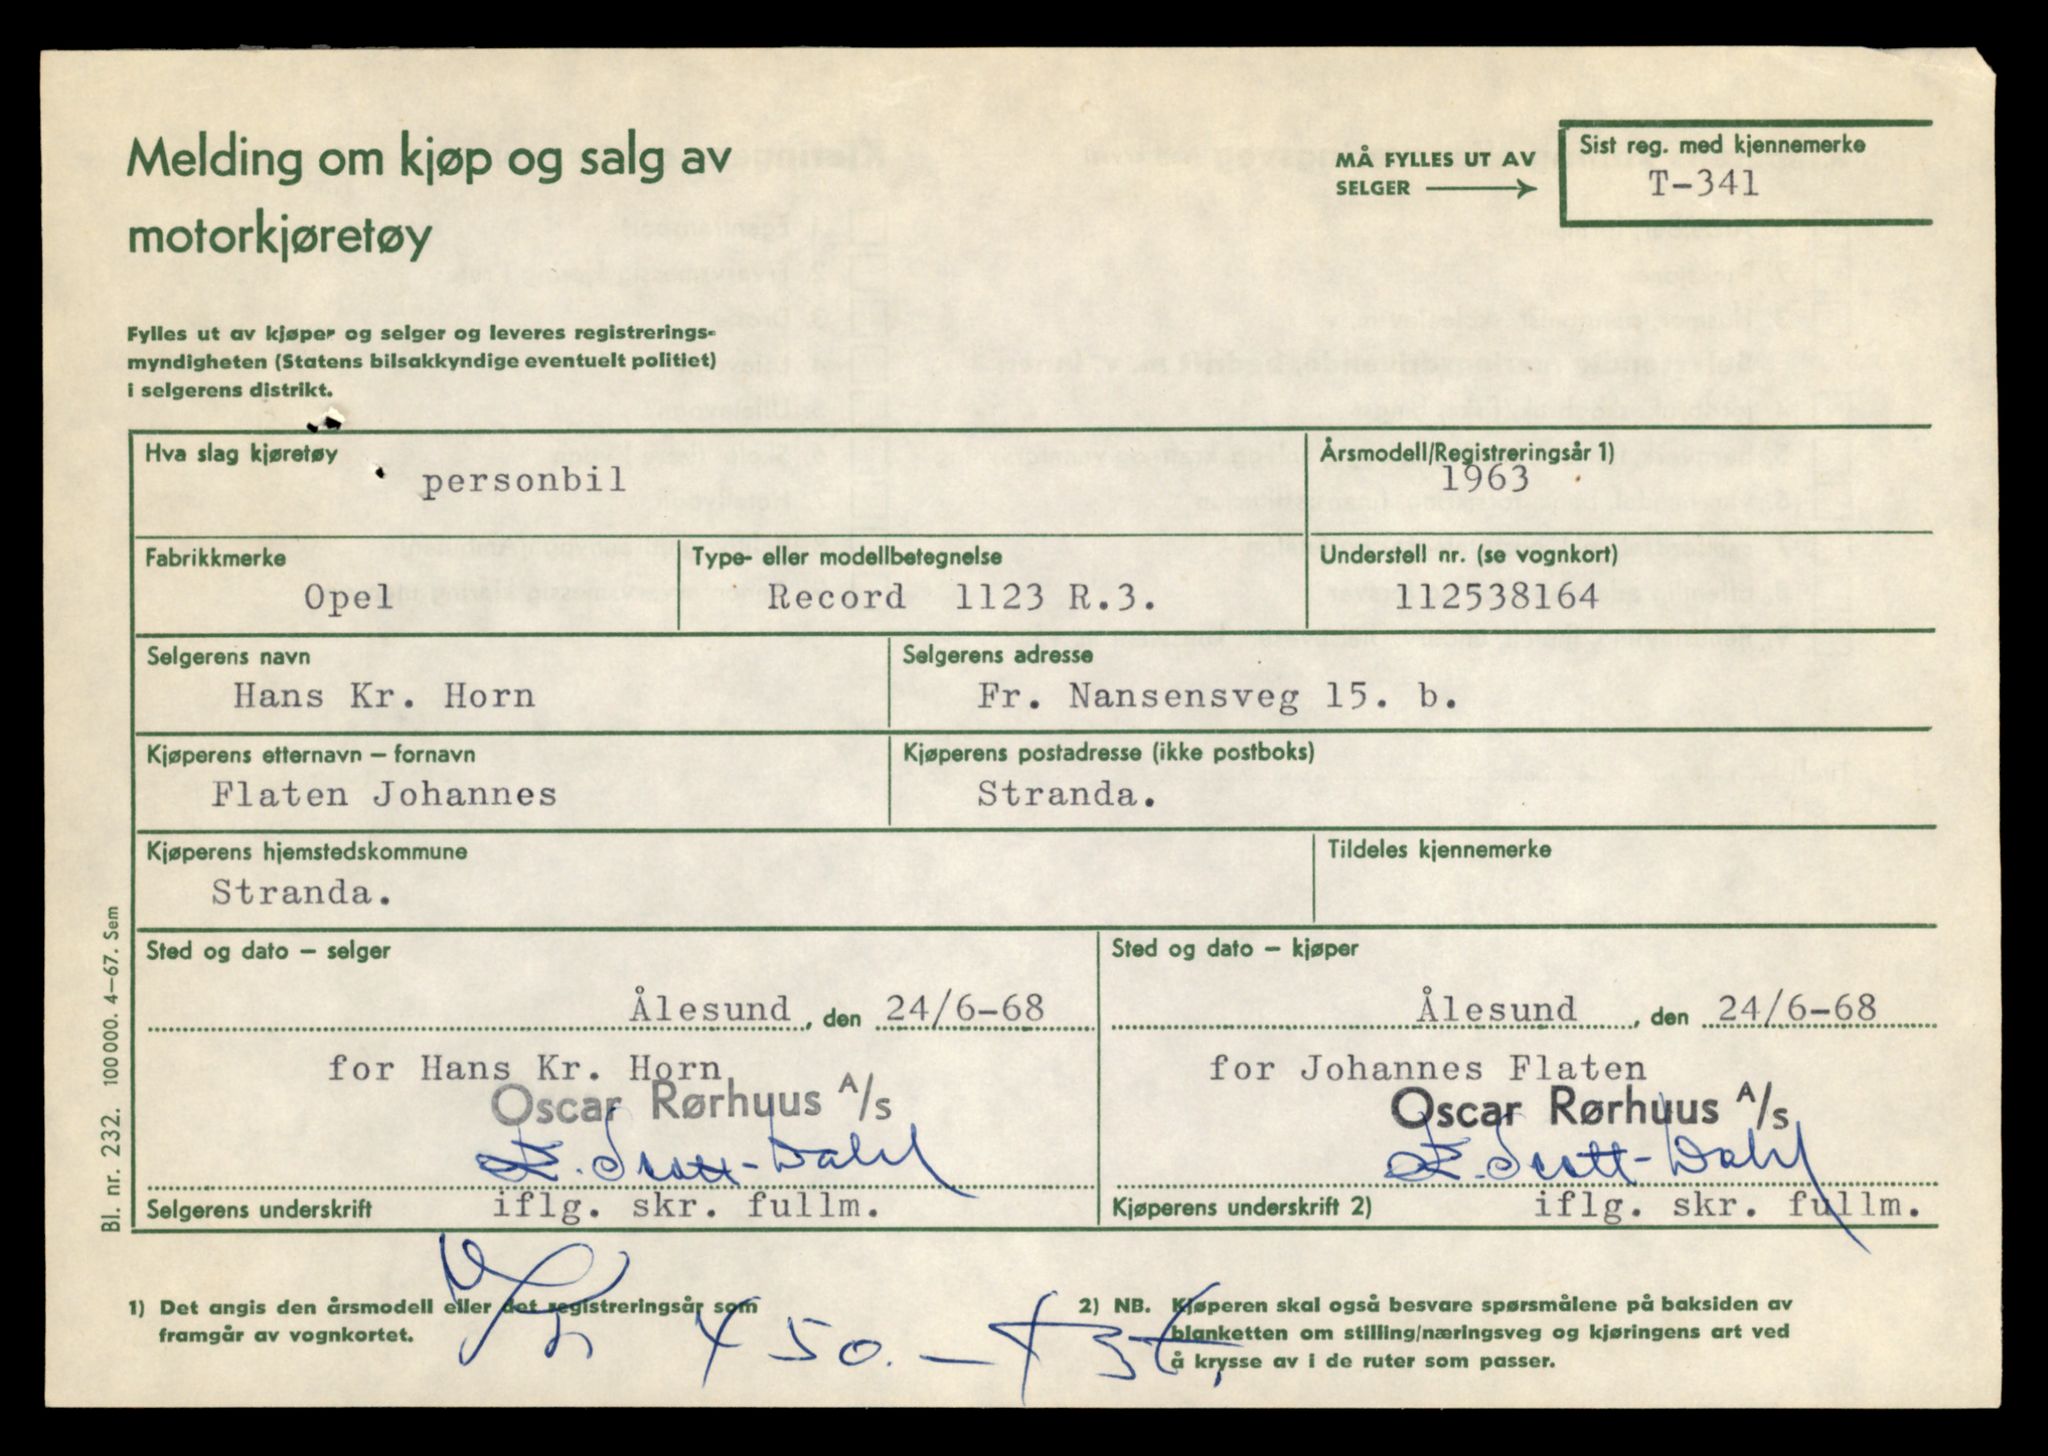 Melding om kjøp og salg av
motorkjøretøy
MÅ FYLLES UT AV
SELGER
Sist reg. med kjennemerke
T-341
Fylles ut av kjøper og selger og leveres registrerings-
myndigheten (Statens bilsakkyndige eventuelt politiet)
i selgerens distrikt.
Hva slag kjøretøy
personbil
Årsmodell/Registreringsår 1)
1963
Fabrikkmerke
Opel
Type- eller modellbetegnelse
Record 1123 R.3.
Understell nr. (se vognkort)
112538164
Selgerens navn
Hans Kr. Horn
Selgerens adresse
Fr. Nansensveg 15. b.
Kjøperens etternavn – fornavn
Flaten Johannes
Kjøperens postadresse (ikke postboks)
Stranda.
Kjøperens hjemstedskommune
Stranda.
Tildeles kjennemerke
Sted og dato – selger
Ålesund, den 24/6-68
for Hans Kr. Horn
Oscar Rørhuus A/s
E. Scott-Dahl
Selgerens underskrift iflg. skr. fullm.
Sted og dato – kjøper
Ålesund, den 24/6-68
for Johannes Flaten
Oscar Rørhuus A/s
E. Scott-Dahl
Kjøperens underskrift 2) iflg. skr. fullm.
1) Det angis den årsmodell eller det registreringsår som
framgår av vognkortet.
2) NB. Kjøperen skal også besvare spørsmålene på baksiden av
blanketten om stilling/næringsveg og kjøringens art ved
å krysse av i de ruter som passer.
50.-
Bl. nr. 232. 100 000. 4–67. Sem